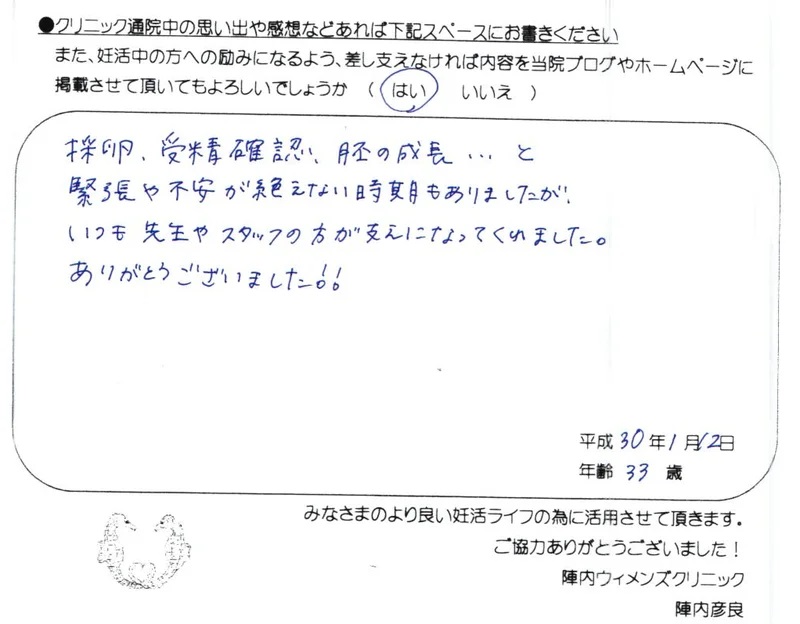 ●クリニック通院中の思い出や感想などあれば下記スペースにお書きください
また、妊活中の方への励みになるよう、差し支えなければ内容を当院ブログやホームページに
掲載させて頂いてもよろしいでしょうか （ はい いいえ ）
採卵、受精確認、胚の成長…と
緊張や不安が絶えない時期もありましたが、
いつも先生やスタッフの方が支えになってくれました。
ありがとうございました!!
平成30年1月12日
年齢 33 歳
みなさまのより良い妊活ライフの為に活用させて頂きます。
ご協力ありがとうございました！
陣内ウィメンズクリニック
陣内彦良